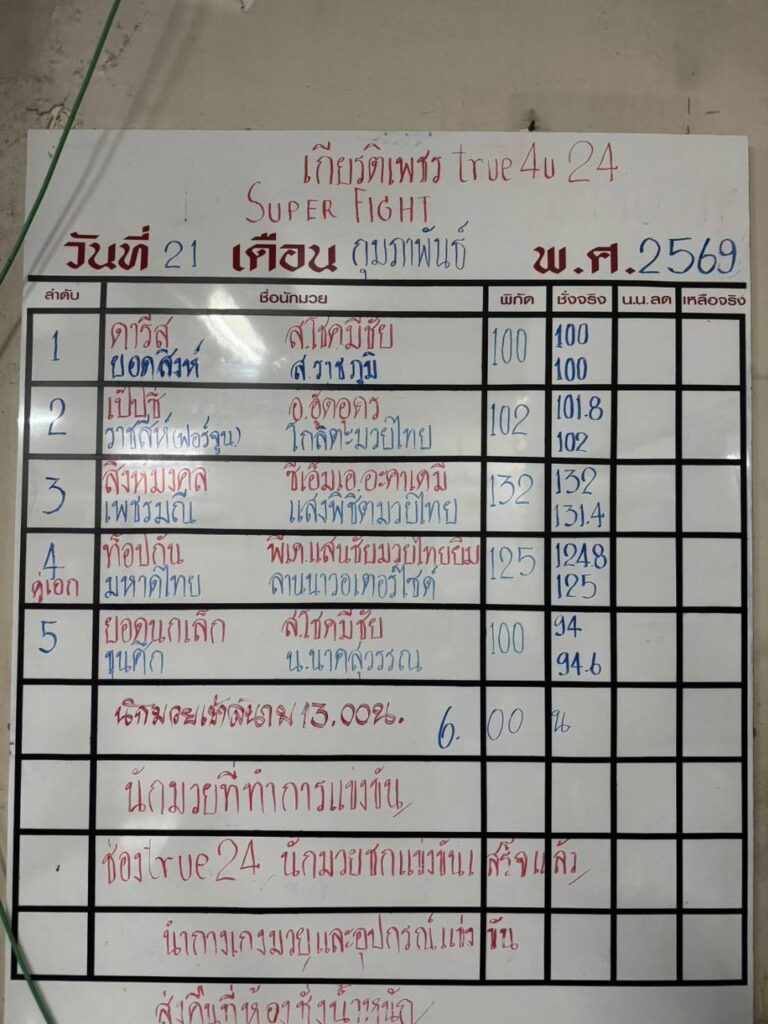 เกียรติเพชร true 4u 24
SUPER FIGHT
วันที่ 21 เดือน กุมภาพันธ์ พ.ศ.2569
ลำดับ ชื่อนักมวย พิกัด ชั่งจริง น.น.ลด เหลือจริง
1 ดารีส ส.โชคมีชัย 100 100
ยอดสิงห์ ส.ราชภูมิ 100
2 เป๊ปซี่ อ.อู๊ดอุดร 102 101.8
ราชสีห์(ฟอร์จูน) โกลิตะมวยไทย 102
3 สิงห์มงคล ซีเอ็มเอ.อะคาเดมี่ 132 132
เพชรมณี แสงพิชิตมวยไทย 131.4
4 ท็อปกัน พีเค.แสนชัยมวยไทยยิม 125 124.8
คู่เอก มหาดไทย ลานนาวอเตอร์ไซด์ 125
5 ยอดนกเล็ก ส.โชคมีชัย 100 94
ขุนศึก น.นาคสุวรรณ 94.6
นักมวยเข้าสนาม 13.00น. 6.00 น
นักมวยที่ทำการแข่งขัน
ช่องtrue 24 นักมวยชกแข่งขันเสร็จแล้ว
นำกางเกงมวยและอุปกรณ์แข่งขัน
ส่งคืนที่ห้องชั่งน้ำหนัก